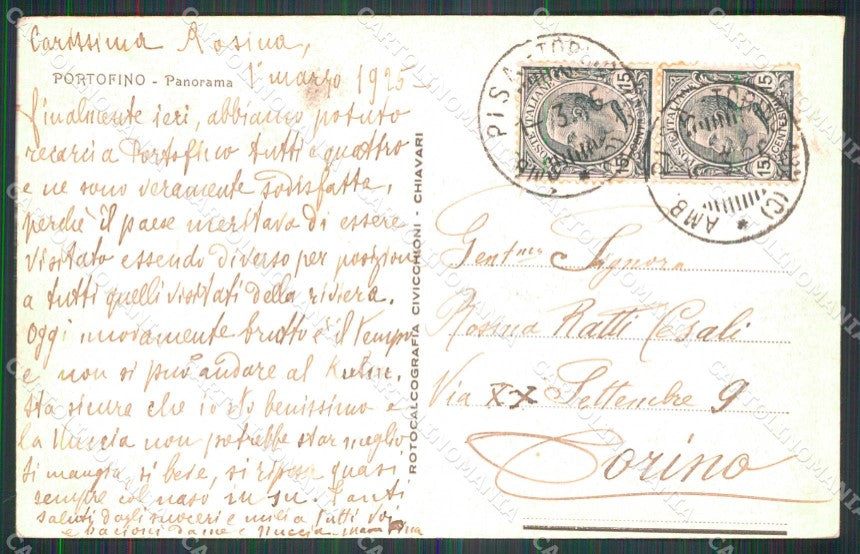 Carissima Rosina,
PORTOFINO - Panorama
1 marzo 1925
finalmente ieri, abbiamo potuto
recarci a Portofino tutti e quattro
e ne sono veramente sodisfatta,
perchè il paese meritava di essere
visitato essendo diverso per posizione
a tutti quelli visitati della riviera.
Oggi nuovamente brutto è il tempo
e non si può andare al Kulm.
Sta sicura che io sto benissimo e
la Nuccia non potrebbe star meglio
si mangia, si beve, si riposa quasi
sempre col naso in su. Tanti
saluti dagli suoceri e miei a tutti voi
e bacioni Nuccia
ROTOCALCOGRAFIA CIVICCHIONI - CHIAVARI
PISA TORINO
AMB. PISA TORINO (C)
POSTE ITALIANE
15 CENTESIMI 15
POSTE ITALIANE
15 CENTESIMI 15
Gent.ma Signora
Rosina Ratti Cesali
Via XX Settembre 9
Torino
CARTOLINOMANIA